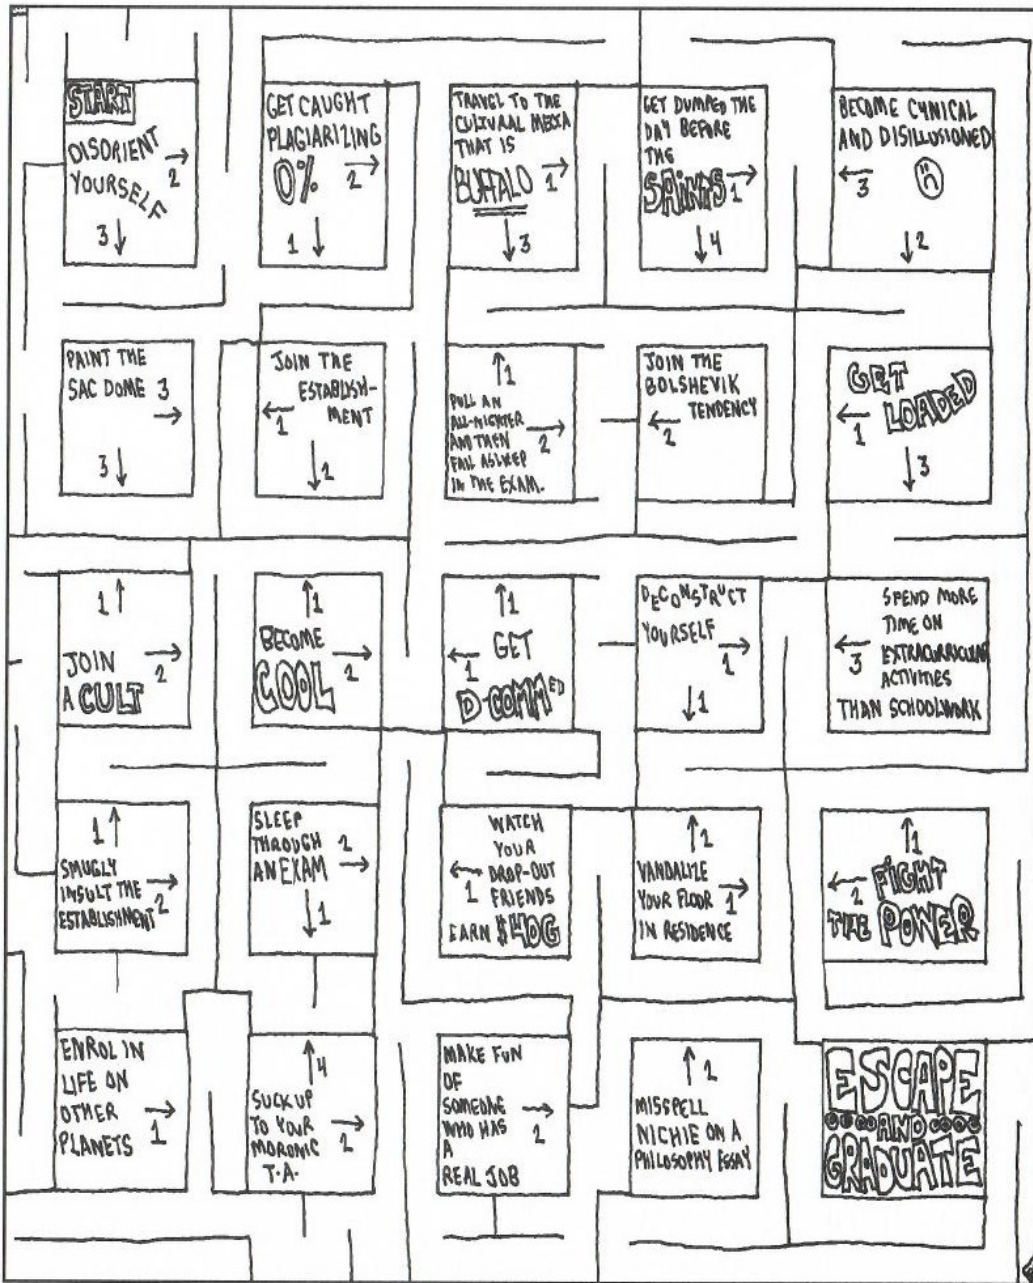 START
DISORIENT → 2
YOURSELF
3 ↓
GET CAUGHT
PLAGIARIZING
0% 2 →
1 ↓
TRAVEL TO THE
CULTURAL MECCA
THAT IS
BUFFALO → 1
↓ 3
GET DUMPED THE
DAY BEFORE
THE
SAINTS → 1
↓ 4
BECOME CYNICAL
AND DISILLUSIONED
← 3
↓ 2
PAINT THE
SAC DOME 3 →
3 ↓
JOIN THE
← 1 ESTABLISH-
MENT
↓ 1
↑ 1
PULL AN
ALL-NIGHTER
AND THEN → 2
FALL ASLEEP
IN THE EXAM.
JOIN THE
BOLSHEVIK
← 2 TENDENCY
GET
← 1 LOADED
↓ 3
1 ↑
JOIN → 2
A CULT
↑ 1
BECOME → 2
COOL
↑ 1
← 1 GET
D-COMMED
DECONSTRUCT
YOURSELF → 1
↓ 1
SPEND MORE
TIME ON
← 3 EXTRACURRICULAR
ACTIVITIES
THAN SCHOOLWORK
1 ↑
SMUGLY
INSULT THE → 2
ESTABLISHMENT
SLEEP
THROUGH 2 →
AN EXAM
↓ 1
WATCH
YOUR
← 1 DROP-OUT
FRIENDS
EARN $40G
↑ 2
VANDALIZE
YOUR FLOOR → 1
IN RESIDENCE
↑ 1
← 2 FIGHT
THE POWER
ENROL IN
LIFE ON
OTHER → 1
PLANETS
↑ 4
SUCK UP
TO YOUR → 2
MORONIC
T.A.
MAKE FUN
OF
SOMEONE
WHO HAS → 2
A
REAL JOB
↑ 2
MISSPELL
NICHIE ON A
PHILOSOPHY ESSAY
ESCAPE
AND
GRADUATE